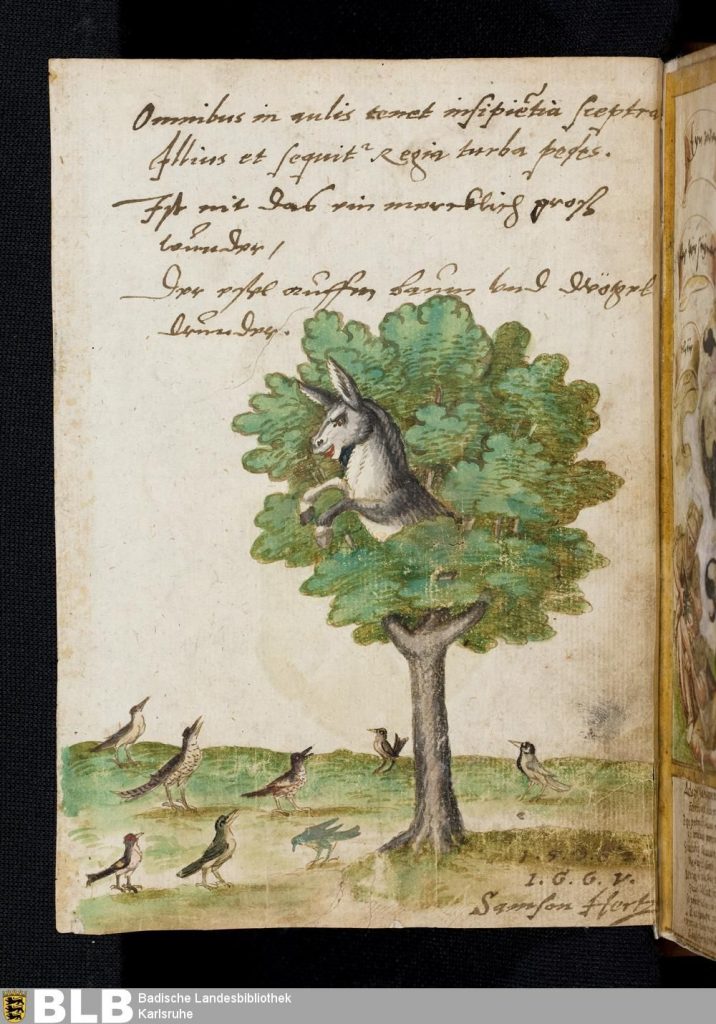 Omnibus in aulis tenet insipiẽtia sceptra
Illius et sequit² Regia turba pedes.
Ist nit das ein mercklich groß
wunder /
Der esel auffm baum vnd d vögel
drunder.
I. G. G. V.
Samson Hert
BLB
Badische Landesbibliothek
Karlsruhe